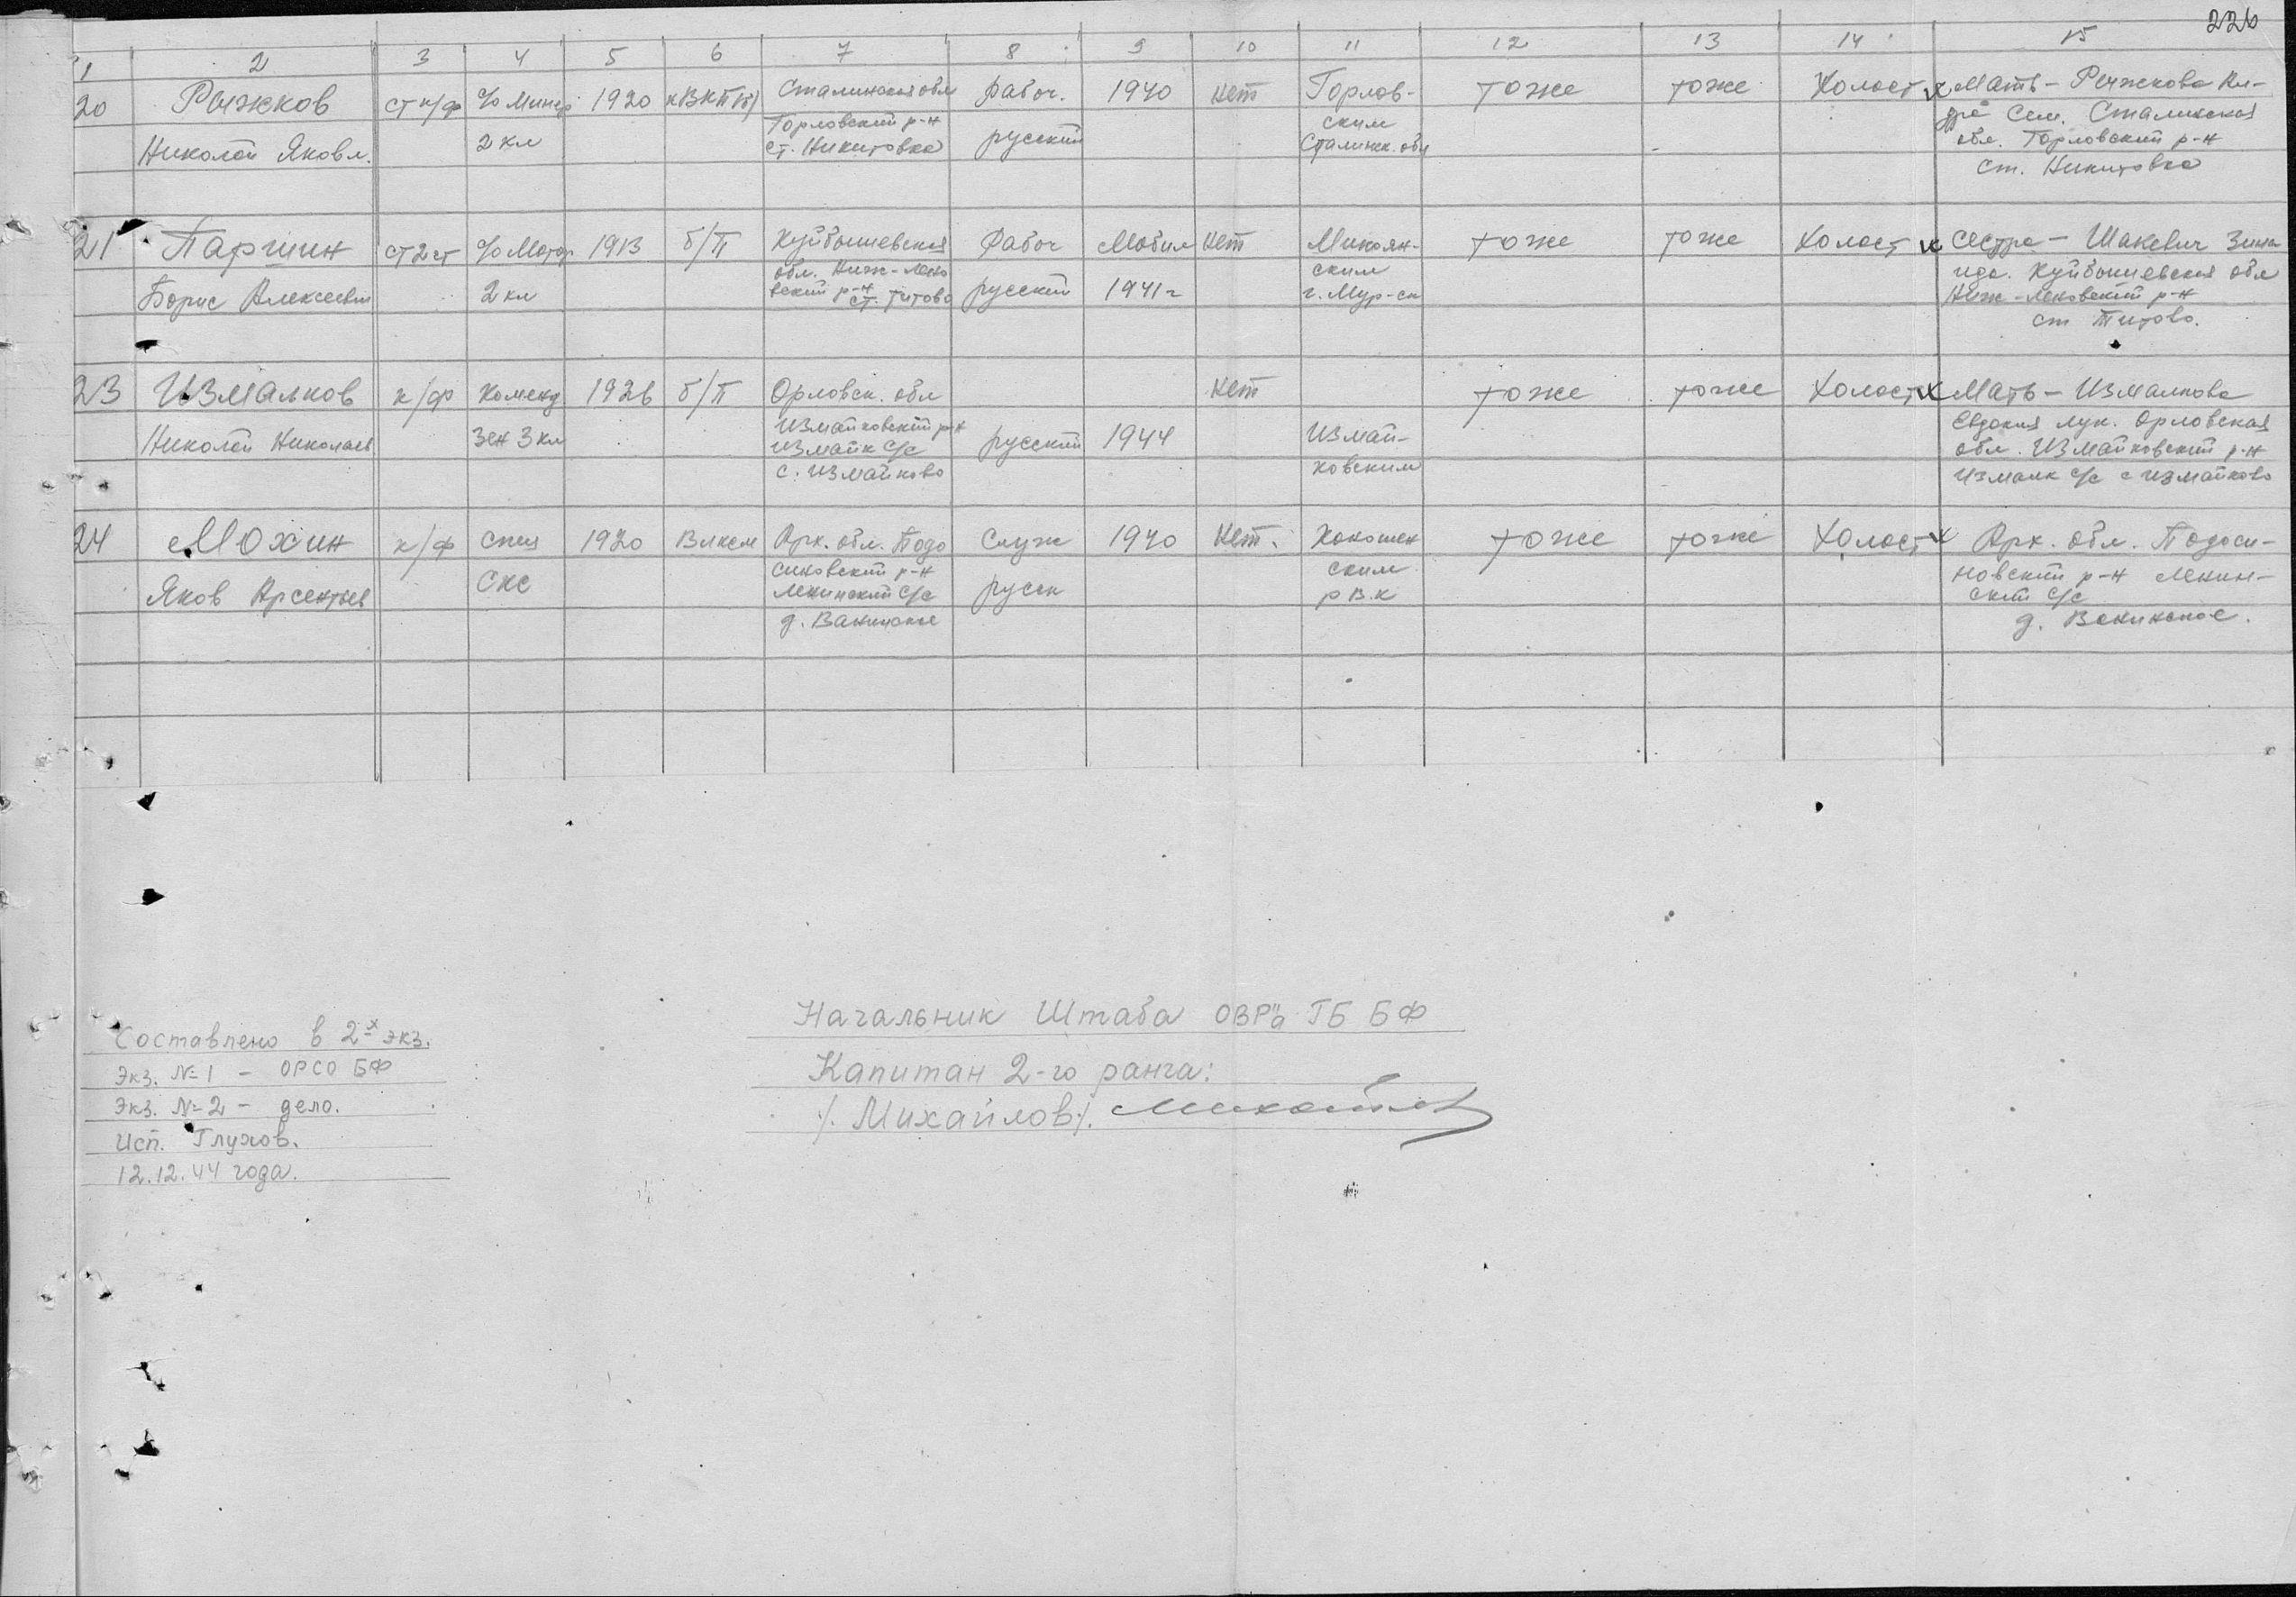 226
1 2 3 4 5 6 7 8 9 10 11 12 13 14 15
20 Рыжков ст к/ф Ч/о Минер 1920 кВКП(б) Сталинская обл Рабоч. 1940 нет Горлов- тоже тоже Холост х Мать - Рыжкова
Горловский р-н ским Сем. Сталинская
Николай Яковл. 2 кл ст. Никитовка русский Сталинск. обл обл. Горловский р-н
ст. Никитовка
21 Паршин ст 2 ст Ч/о Мотор 1913 б/п Куйбышевская Рабоч Мобил нет Микоян- тоже тоже Холост х Сестра - Шакевич Зина
обл. ским ида. Куйбышевская обл
Борис Алексеевич 2 кл вский р-н ст. Титово русский 1941 г г. Мур-ск р-н
ст Титово.
23 Измалков к/ф Коменд 1926 б/п Орловск. обл нет тоже тоже Холост х Мать - Измалкова
Измайковский р-н Евдокия Лук. Орловская
Николай Николаев зен 3 кл Измайк с/с русский 1944 Измай- обл. Измайковский р-н
с. Измайково ковским Измалк с/с с Измайково
24 Мохин к/ф Спец 1920 Влксм Арх. обл. Подо Служ 1940 Нет. тоже тоже Холост х Арх. обл. Подоси-
синовский р-н ским новский р-н Ленин-
Яков Арсентьев СКС Ленинский с/с русск р.в.к ский с/с
д. Вакинское д. Вакинское.
Начальник Штаба ОВР"а ГБ БФ
Капитан 2-го ранга:
/. Михайлов./. Михайлов
Составлено в 2-х экз.
Экз. №1 - ОРСО БФ
Экз. №2 - дело.
Исп. Глухов.
12.12.44 года.